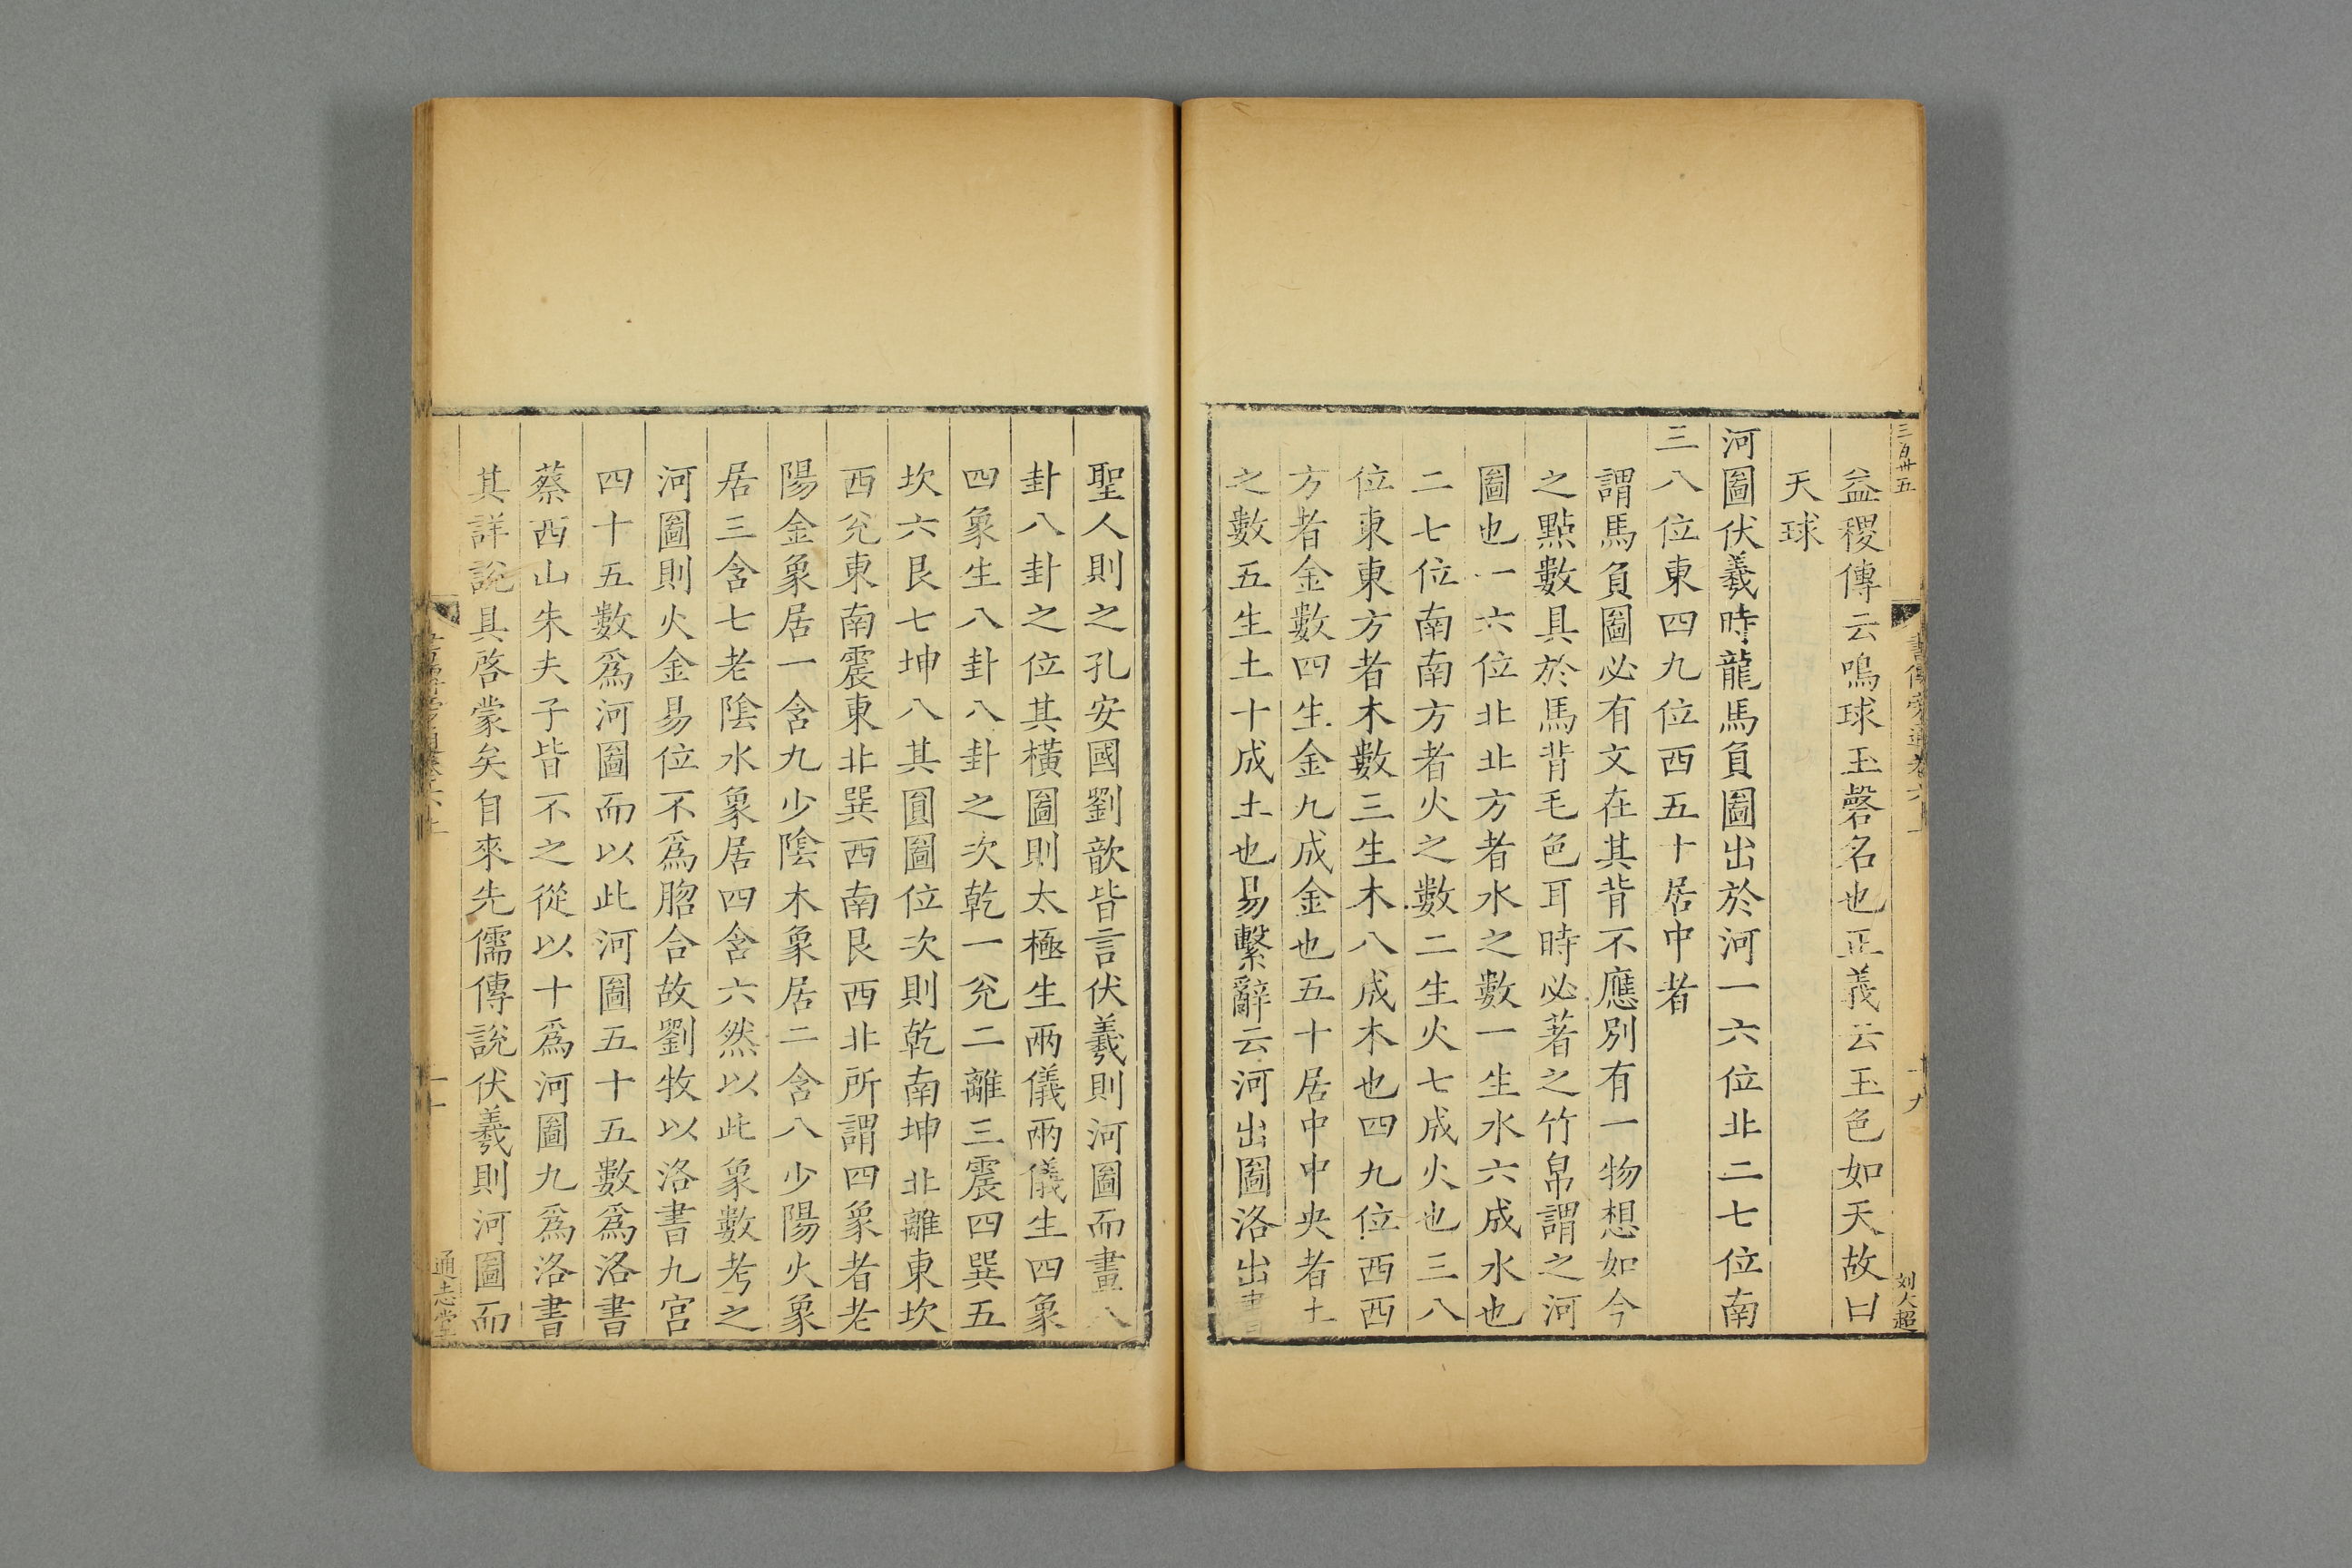 三百卅五
書傳旁通卷六上
十九
刘大超
益稷傳云鳴球玉磬名也正義云玉色如天故曰
天球
河圖伏羲時龍馬負圖出於河一六位北二七位南
三八位東四九位西五十居中者
謂馬負圖必有文在其背不應別有一物想如今
之點數具於馬背毛色耳時必著之竹帛謂之河
圖也一六位北北方者水之數一生水六成水也
二七位南南方者火之數二生火七成火也三八
位東東方者木數三生木八成木也四九位西西
方者金數四生金九成金也五十居中中央者土
之數五生土十成土也易繫辭云河出圖洛出書
聖人則之孔安國劉歆皆言伏羲則河圖而畫八
卦八卦之位其橫圖則太極生兩儀兩儀生四象
四象生八卦八卦之次乾一兊二離三震四巽五
坎六艮七坤八其圓圖位次則乾南坤北離東坎
西兊東南震東北巽西南艮西北所謂四象者老
陽金象居一含九少陰木象居二含八少陽火象
居三含七老陰水象居四含六然以此象數考之
河圖則火金易位不爲脗合故劉牧以洛書九宮
四十五數爲河圖而以此河圖五十五數爲洛書
蔡西山朱夫子皆不之從以十爲河圖九爲洛書
其詳說具啓蒙矣自來先儒傳說伏羲則河圖而
通志堂